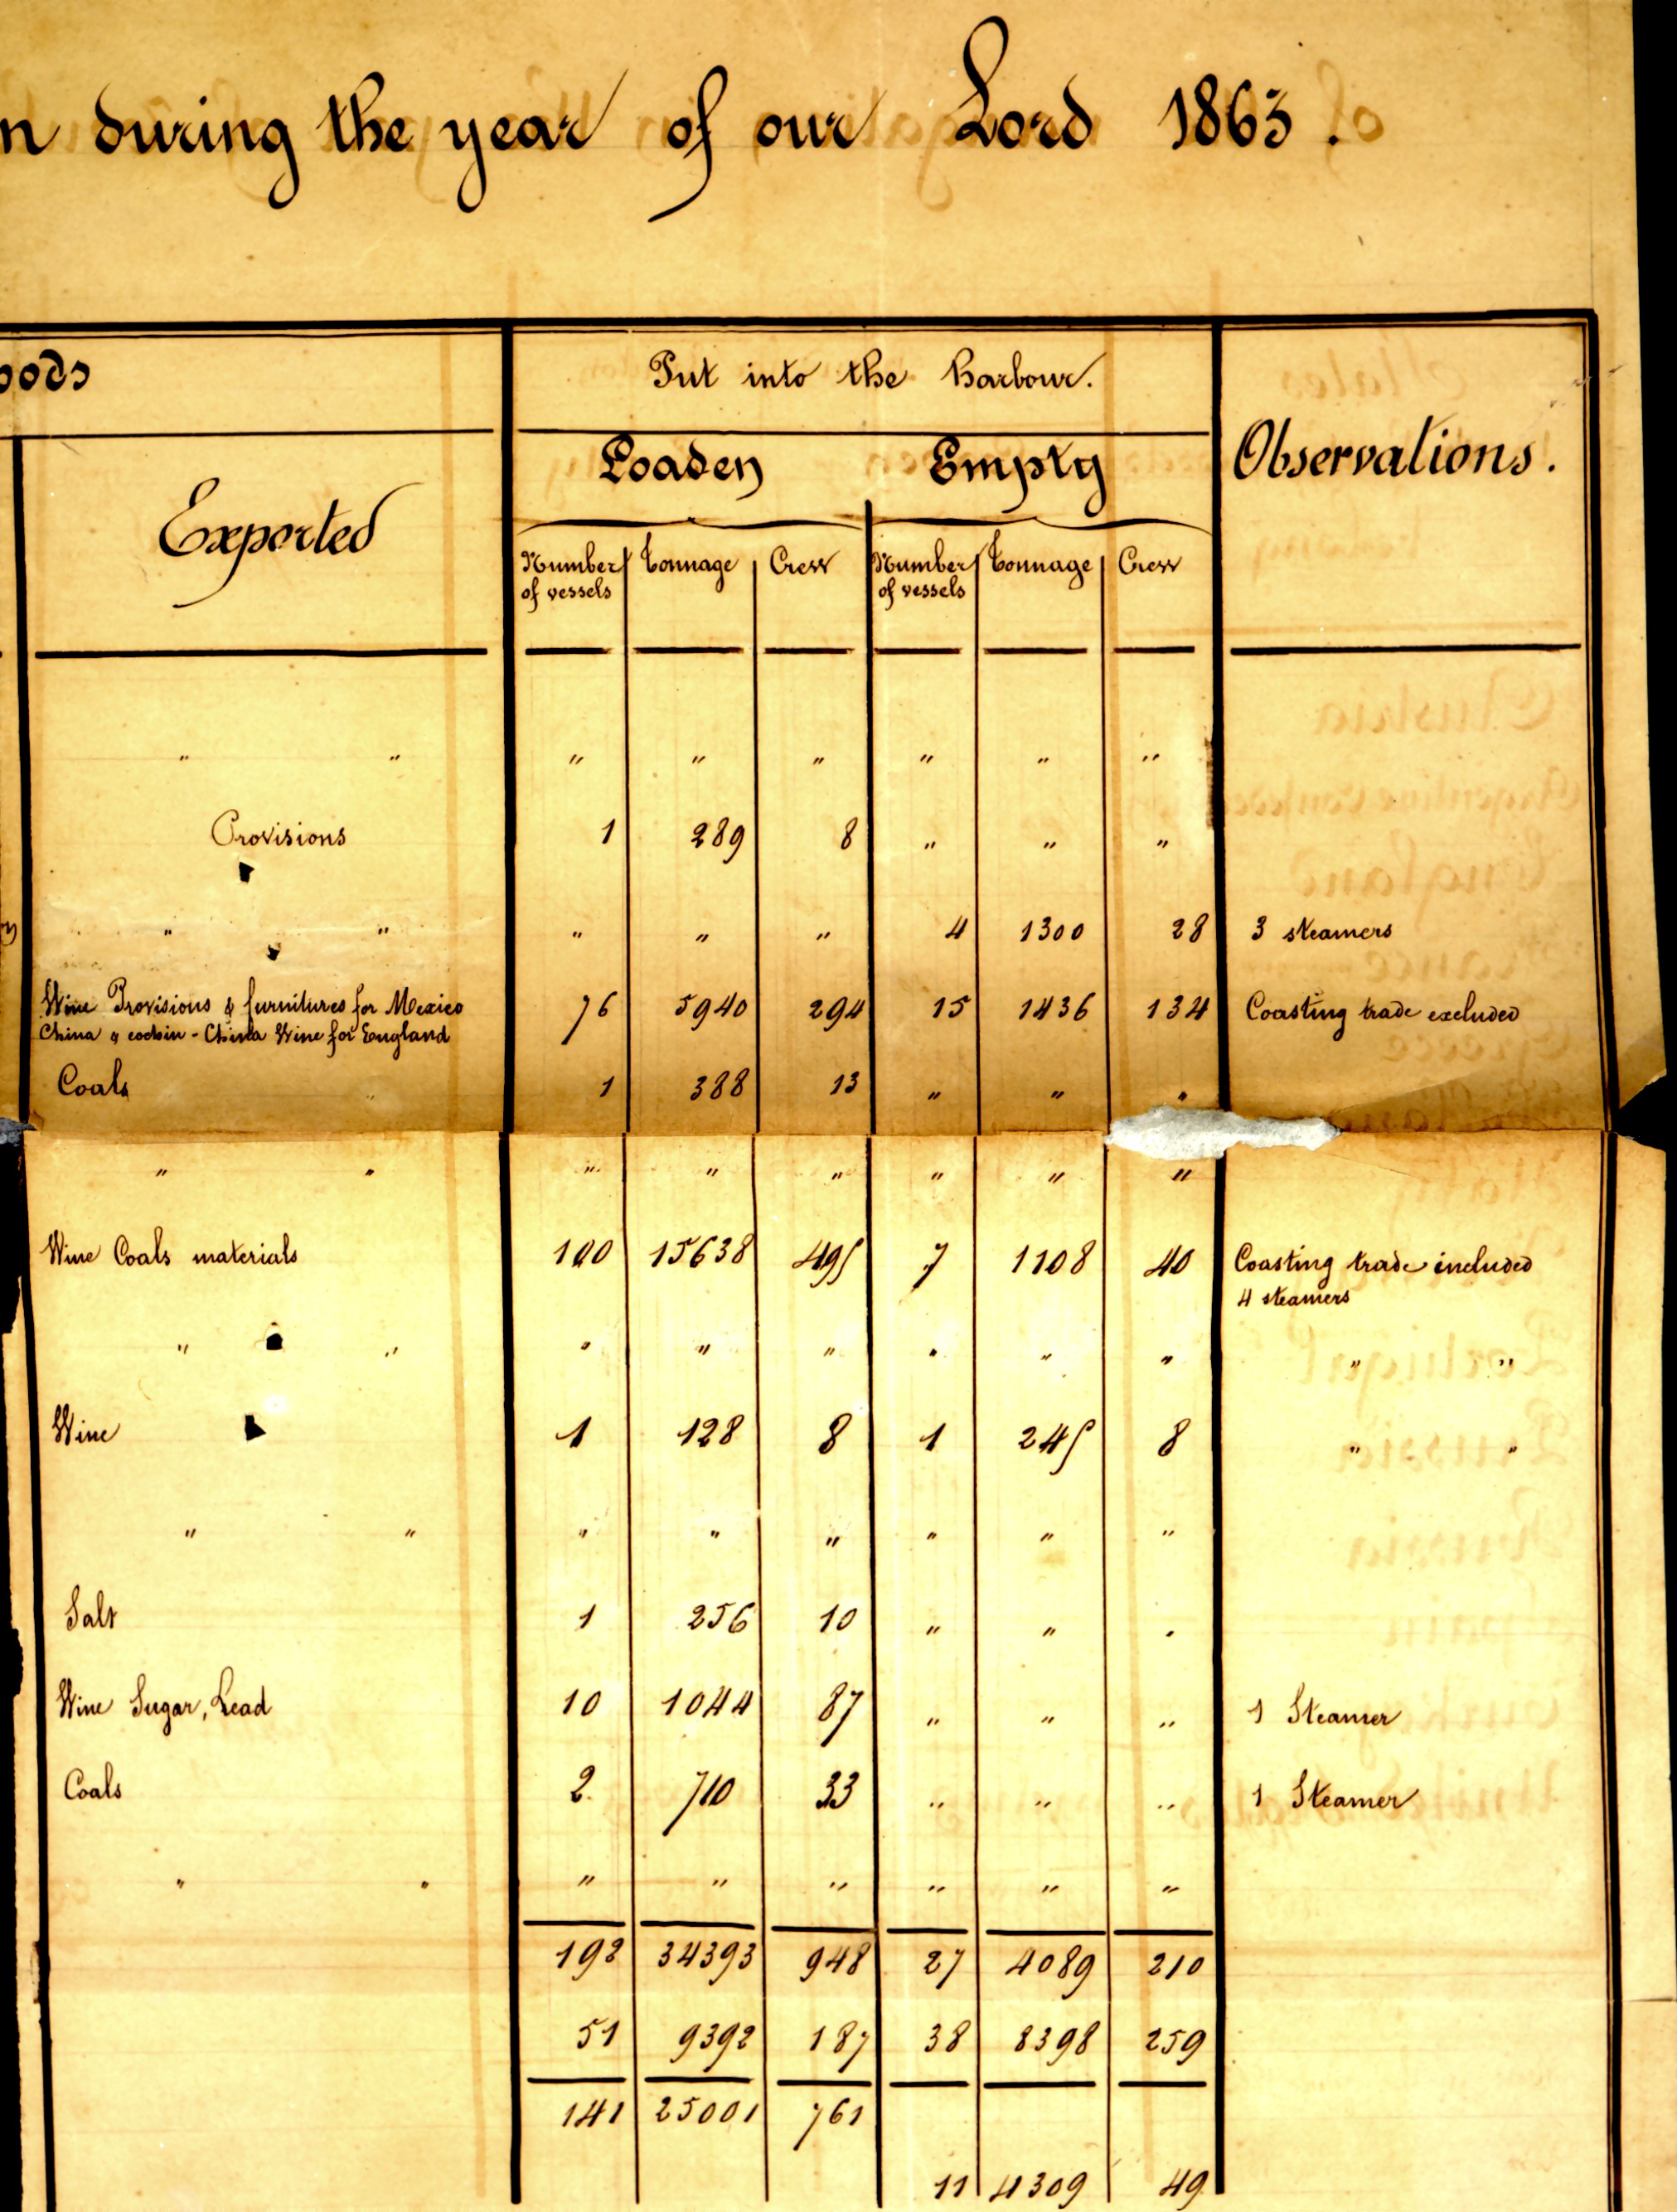 n during the year of our Lord 1863.
oods
Put into the harbour.
Observations.
Exported
Loaden Empty
Number of vessels Tonnage Crew Number of vessels Tonnage Crew
" " " " " " " "
Provisions 1 289 8 " " "
" " " " " 4 1300 28 3 steamers
Wine Provisions & furnitures for Mexico 76 5940 294 15 1436 134 Coasting trade excluded
China & cochin-China Wine for England
Coals " 1 388 13 " " "
" " " " " " " "
Wine Coals materials 100 15638 495 7 1108 40 Coasting trade included
4 steamers
" " " " " " " " " "
Wine 1 128 8 1 245 8 " "
" " " " " " " "
Salt 1 256 10 " " "
Wine Sugar, Lead 10 1044 87 " " " 1 Steamer
Coals 2 710 33 " " " 1 Steamer
" " " " " " " "
192 34393 948 27 4089 210
51 9392 187 38 8398 259
141 25001 761
11 4309 49